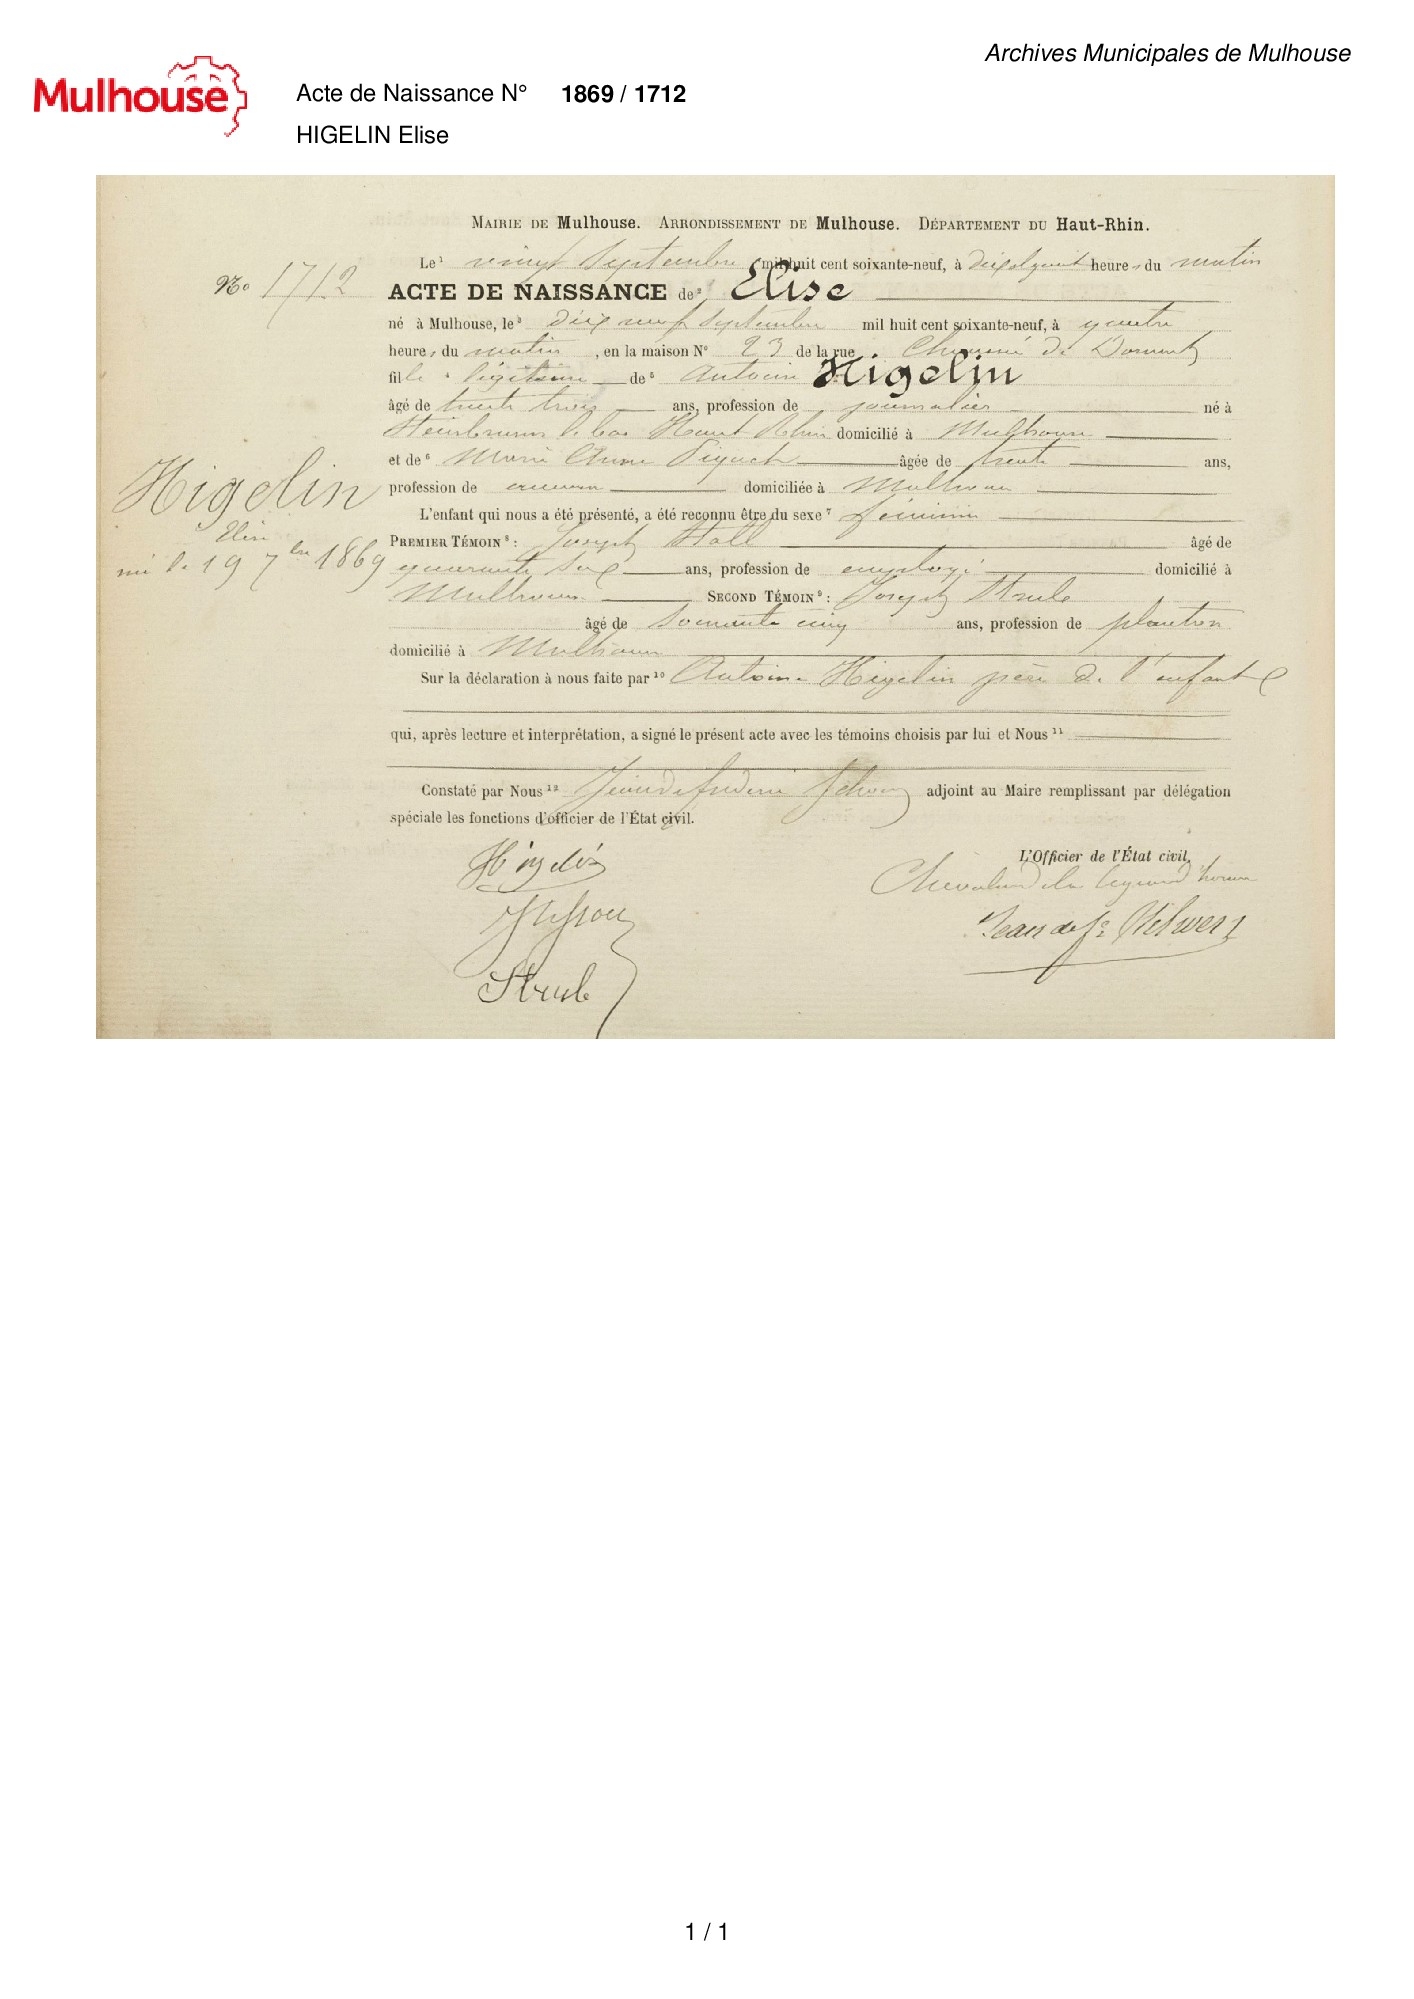 Archives Municipales de Mulhouse
Mulhouse
Acte de Naissance N° 1869 / 1712
HIGELIN Elise
MAIRIE DE Mulhouse. ARRONDISSEMENT DE Mulhouse. DÉPARTEMENT DU Haut-Rhin.
Le¹ vingt Septembre mil huit cent soixante-neuf, à heures du matin
No 1712
ACTE DE NAISSANCE de² Elise
né à Mulhouse, le³ dix neuf Septembre mil huit cent soixante-neuf, à quatre
heures du matin, en la maison N° 23 de la rue de Dornach
fille ⁴ légitime de⁵ Antoine Higelin
âgé de trente trois ans, profession de journalier né à
le bas Haut Rhin domicilié à Mulhouse
et de⁶ Marie Anne âgée de trente ans,
profession de domiciliée à Mulhouse
L'enfant qui nous a été présenté, a été reconnu être du sexe⁷ féminin
Higelin
Elise
né le 19 7bre 1869
PREMIER TÉMOIN⁸ : Joseph âgé de
quarante six ans, profession de employé domicilié à
Mulhouse SECOND TÉMOIN⁹ : Joseph Strub
âgé de soixante cinq ans, profession de planton
domicilié à Mulhouse
Sur la déclaration à nous faite par¹⁰ Antoine Higelin père de l'enfant
qui, après lecture et interprétation, a signé le présent acte avec les témoins choisis par lui et Nous¹¹
Constaté par Nous¹² adjoint au Maire remplissant par délégation
spéciale les fonctions d'officier de l'État civil.
Higelin
L'Officier de l'État civil,
Chevalier de la legion d'honneur
Strub
1 / 1